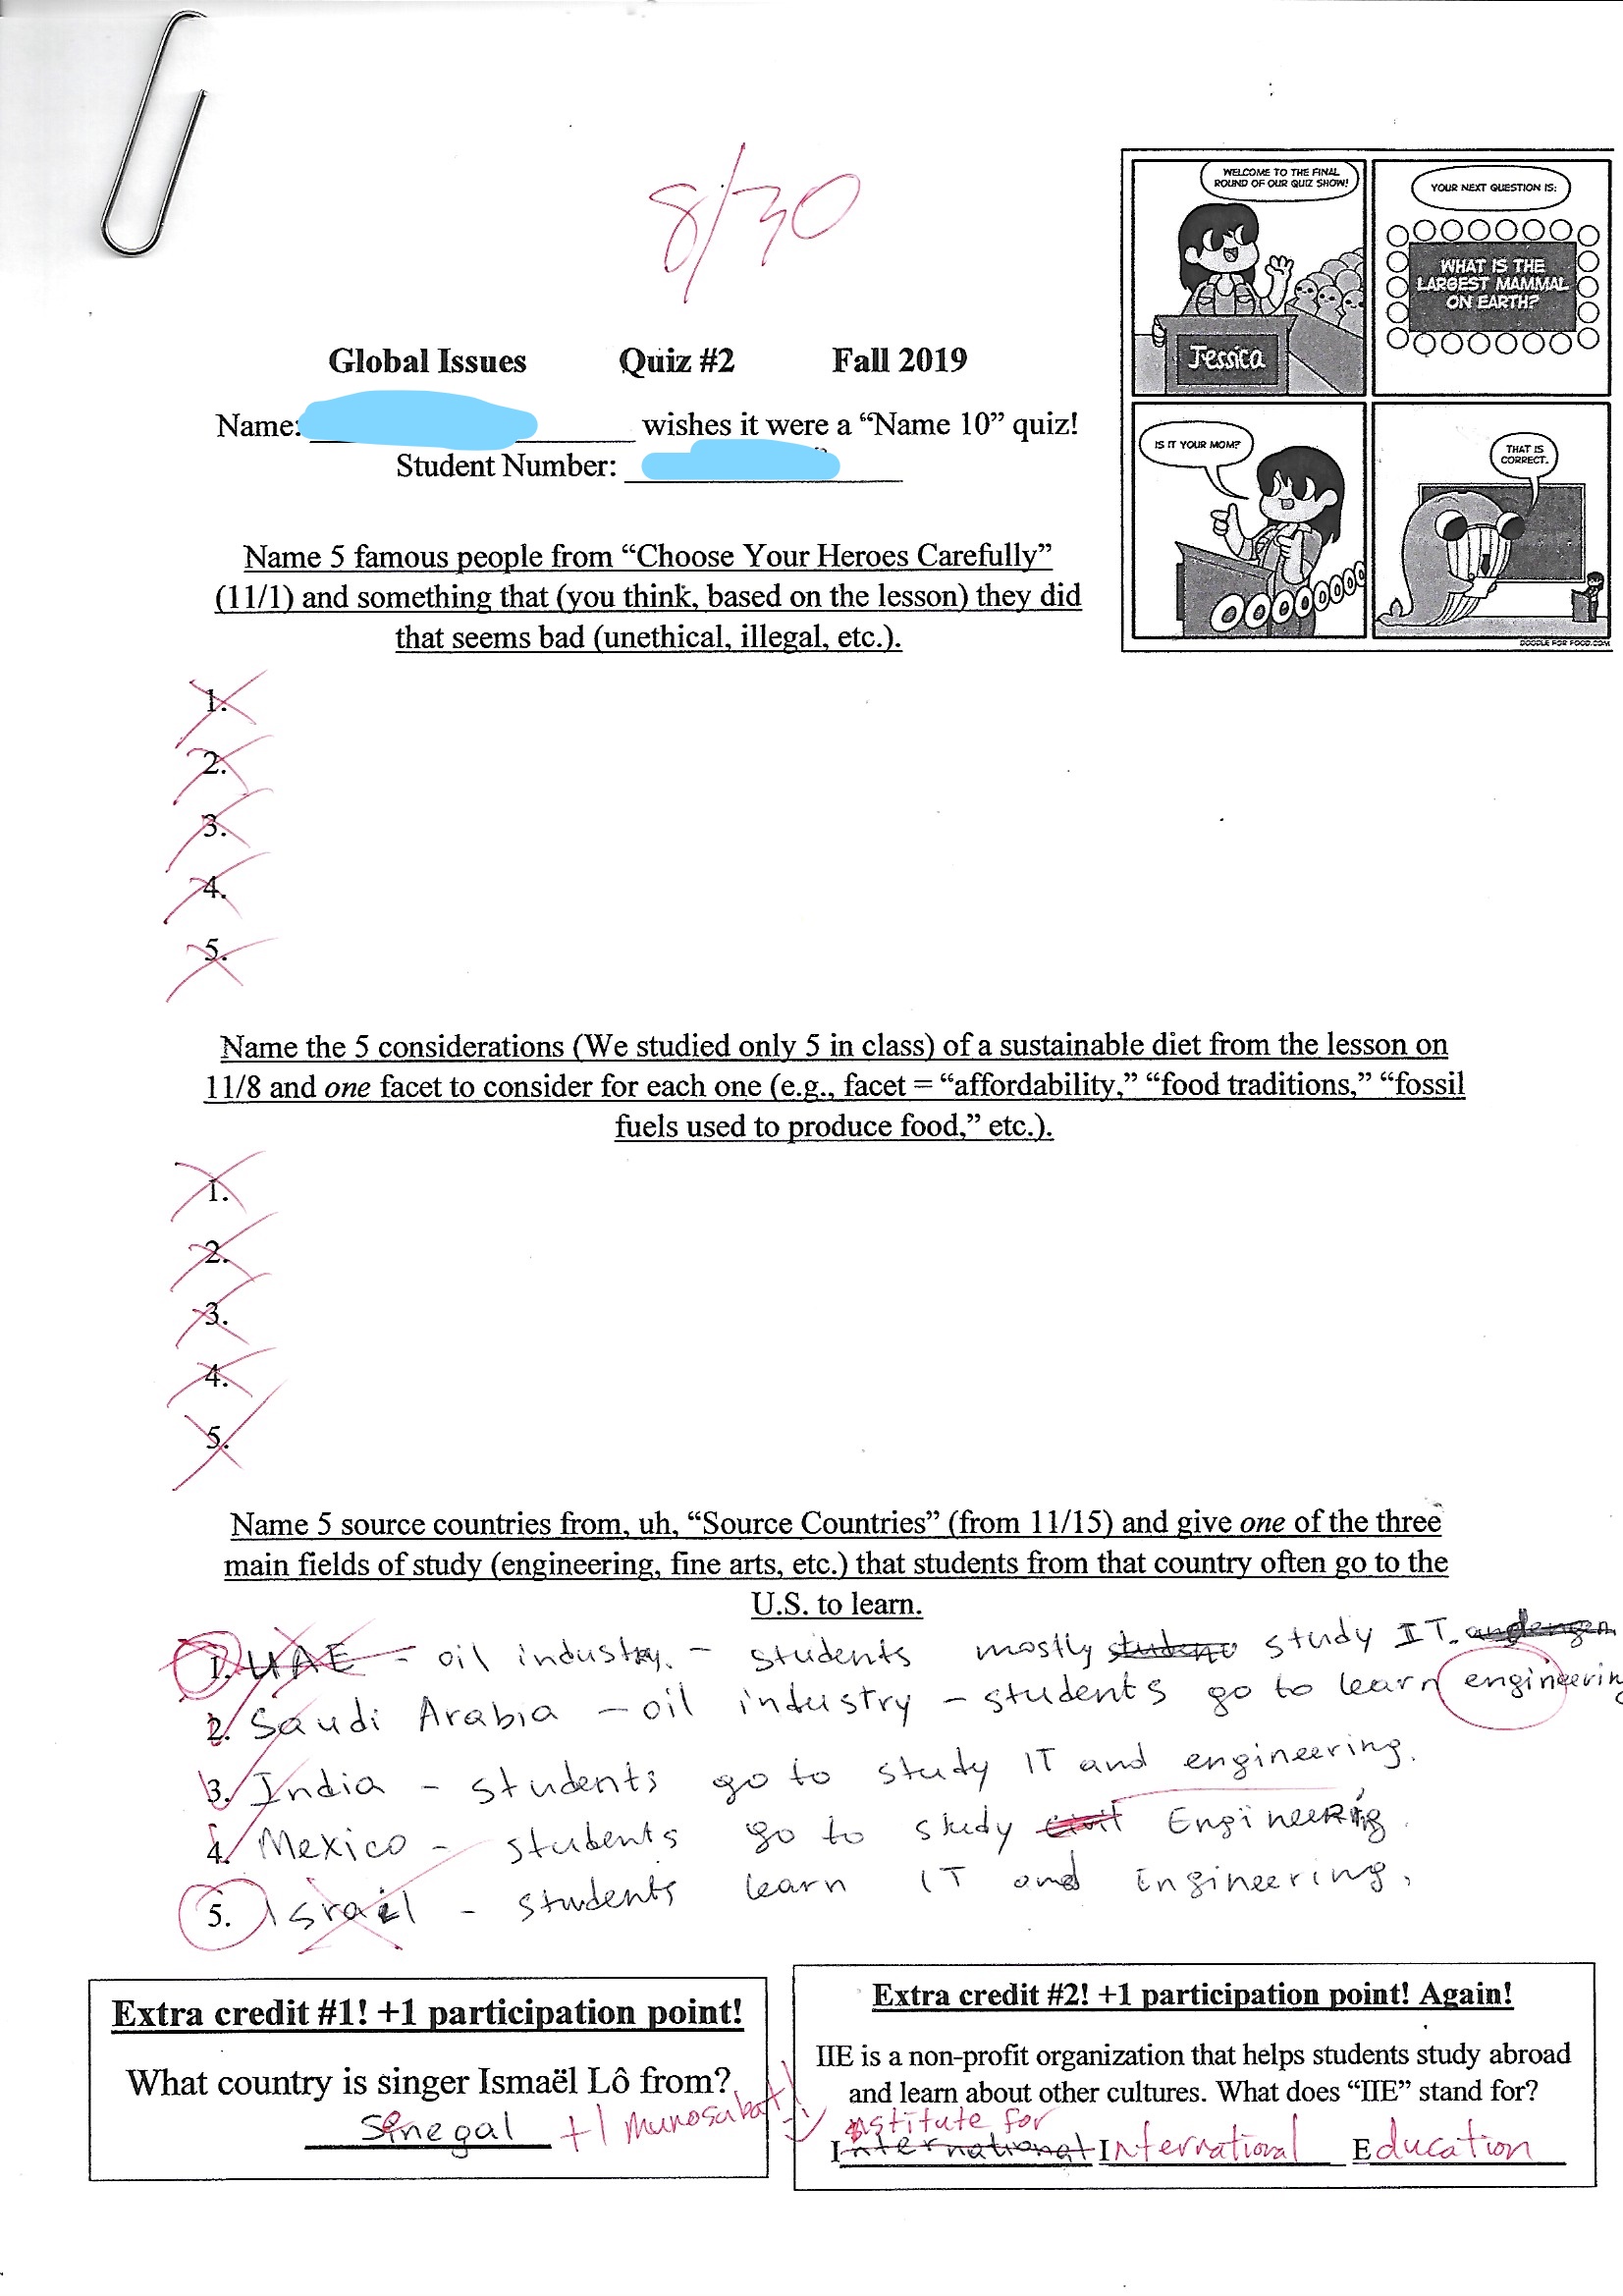 8/30
WELCOME TO THE FINAL
ROUND OF OUR QUIZ SHOW!
Jessica
YOUR NEXT QUESTION IS:
WHAT IS THE
LARGEST MAMMAL
ON EARTH?
IS IT YOUR MOM?
OOOOOOOO
THAT IS
CORRECT.
DOODLE FOR FOOD.COM
Global Issues Quiz #2 Fall 2019
Name: wishes it were a “Name 10” quiz!
Student Number:
Name 5 famous people from “Choose Your Heroes Carefully”
(11/1) and something that (you think, based on the lesson) they did
that seems bad (unethical, illegal, etc.).
1.
2.
3.
4.
5.
Name the 5 considerations (We studied only 5 in class) of a sustainable diet from the lesson on
11/8 and one facet to consider for each one (e.g., facet = “affordability,” “food traditions,” “fossil
fuels used to produce food,” etc.).
1.
2.
3.
4.
5.
Name 5 source countries from, uh, “Source Countries” (from 11/15) and give one of the three
main fields of study (engineering, fine arts, etc.) that students from that country often go to the
U.S. to learn.
1. UAE - oil industry. - students mostly study IT.
2. Saudi Arabia - oil industry - students go to learn engineerin
3. India - students go to study IT and engineering.
4. Mexico - students go to study civil Engineering.
5. Israil - students learn IT and Engineering.
Extra credit #1! +1 participation point!
What country is singer Ismaël Lô from?
Senegal +1 Munosabat!
Extra credit #2! +1 participation point! Again!
IIE is a non-profit organization that helps students study abroad
and learn about other cultures. What does “IIE” stand for?
nstitute for
International International Education